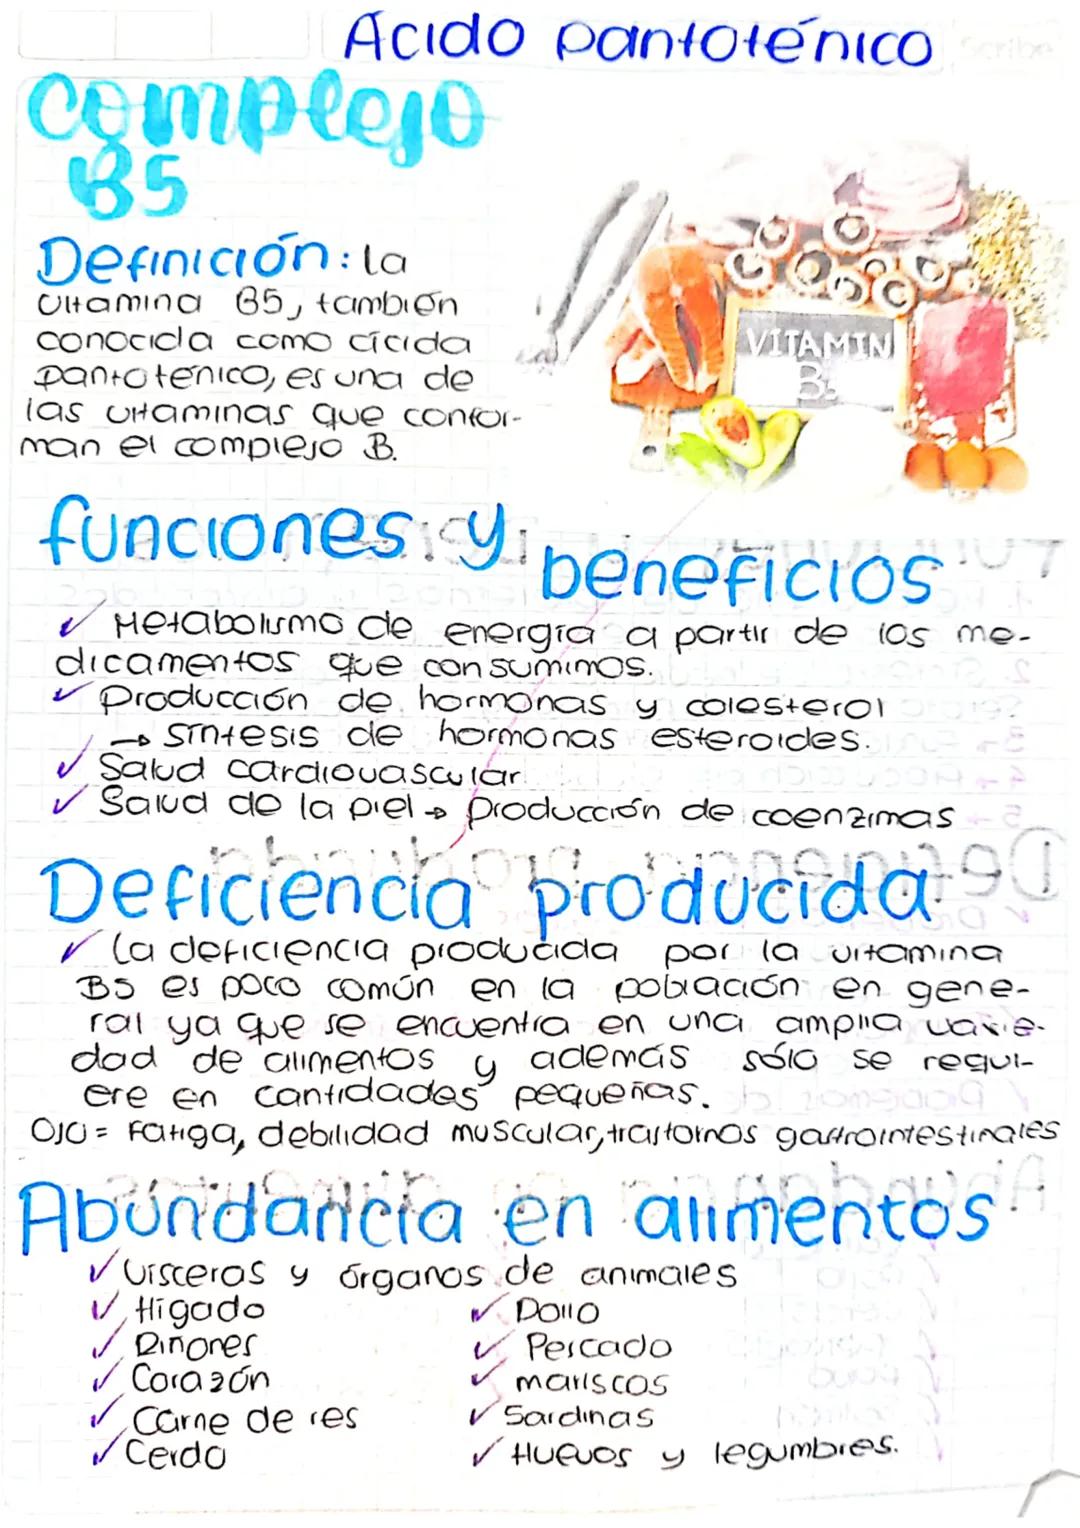 Ácido pantoténico
Scribe
Complejo
B5
Definición: la
vitamina B5, también
conocida como cícida
pantoténico, es una de
las vitaminas que confor-
man el complejo B.
VITAMIN
B5
funciones y
beneficios
✓ Metabolismo de energía a partir de los me-
dicamentos que consumimos.
✓ Producción de hormonas y colesterol
→ síntesis de hormonas esteroides.
✓ Salud cardiovascular
✓ Salud de la piel → producción de coenzimas
Deficiencia producida
✓ La deficiencia producida por la vitamina
B5 es poco común en la población en gene-
ral ya que se encuentra en una amplia varie-
dad de alimentos y además sólo se requi-
ere en cantidades pequeñas.
OJO = Fatiga, debilidad muscular, trastornos gastrointestinales
Abundancia en alimentos
✓ Vísceras y órganos de animales
✓ Hígado ✓ Pollo
✓ Riñones ✓ Pescado
✓ Corazón ✓ mariscos
✓ Carne de res ✓ Sardinas
✓ Cerdo ✓ Huevos y legumbres.